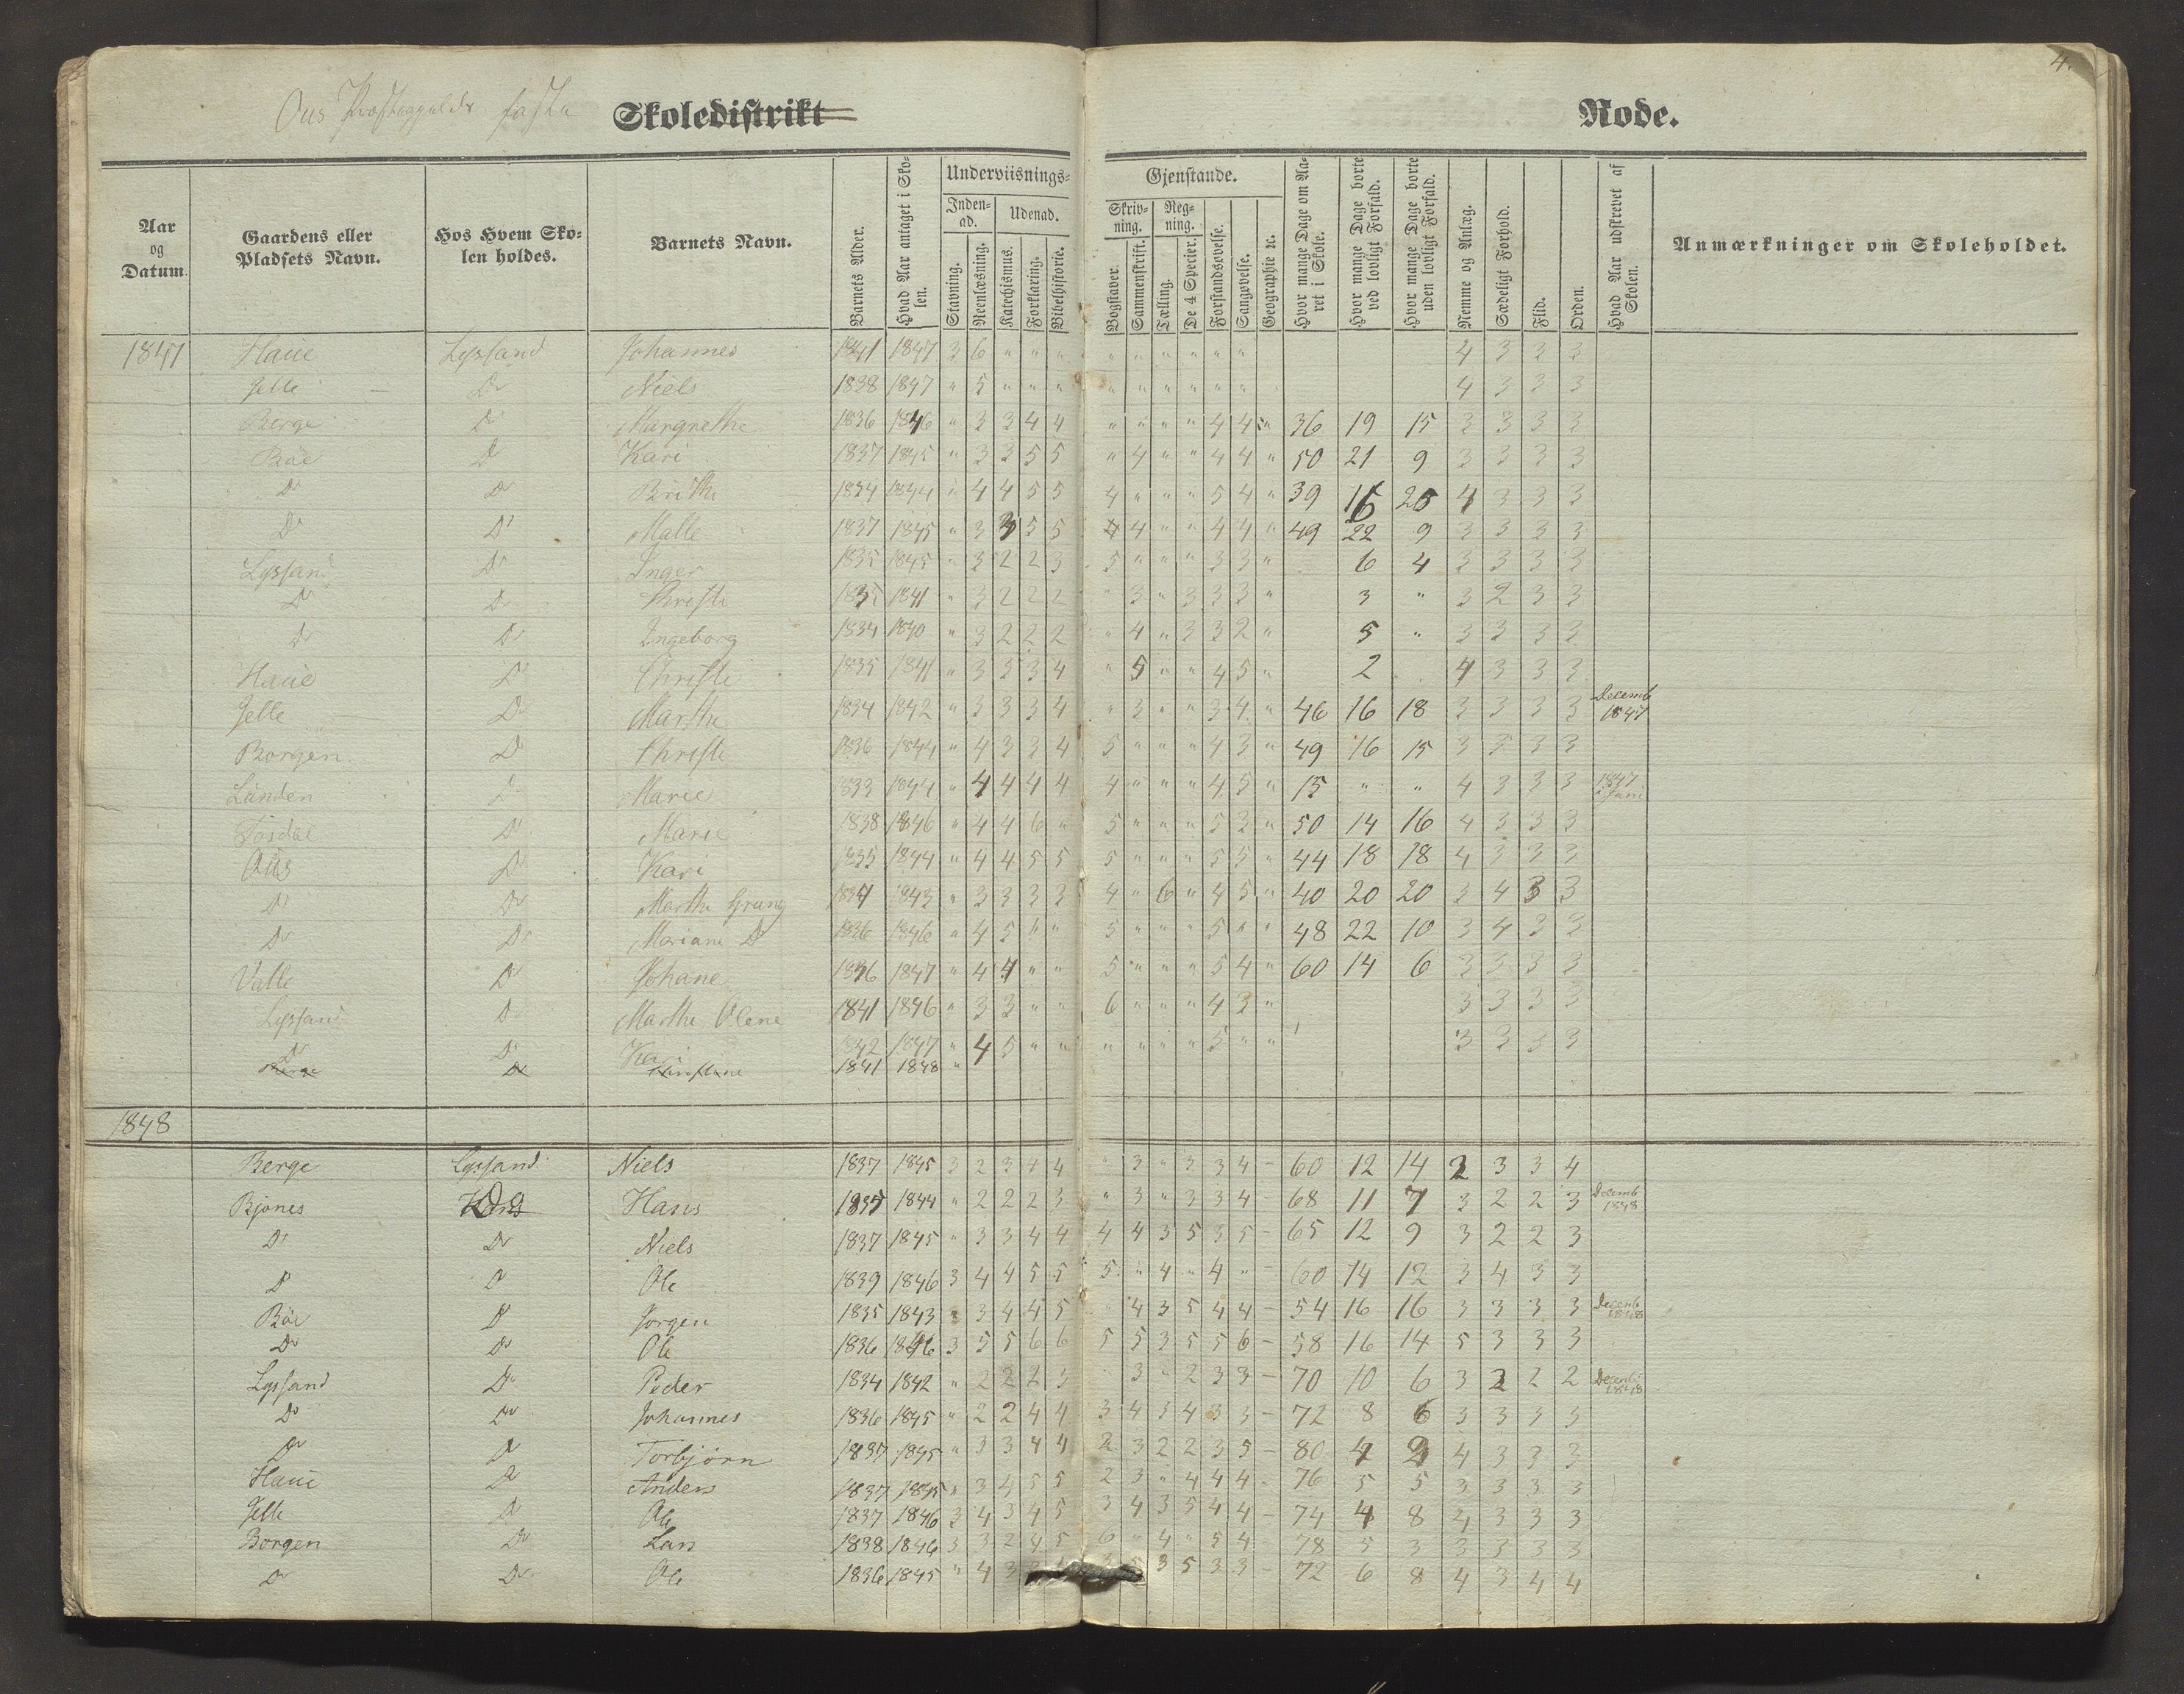 4.
Ous Præstegjelds faste Skoledistrikt
Rode.
Aar og Datum.
Gaardens eller Pladsets Navn.
Hos Hvem Skolen holdes.
Barnets Navn.
Barnets Alder.
Hvad Aar antaget i Skolen.
Underviisnings-
Inden-ad.
Udenad.
Stavning.
Reenlæsning.
Katechismus.
Forklaring.
Bibelhistorie.
Gjenstande.
Skriv-ning.
Reg-ning.
Bogstaver.
Sammenskrift.
Tælling.
De 4 Specier.
Forstandsøvelse.
Sangøvelse.
Geographie ꝛc.
Hvor mange Dage om Aaret i Skole.
Hvor mange Dage borte ved lovligt Forfald.
Hvor mange Dage borte uden lovligt Forfald.
Nemme og Anlæg.
Sædeligt Forhold.
Flid.
Orden.
Hvad Aar udskrevet af Skolen.
Anmærkninger om Skoleholdet.
1847 Haue Lyssand Johannes 1841 1847 3 6 " " " " " " " " " 4 3 3 3
Jelle Do Niels 1838 1847 " 5 " " " " " " " " " 4 3 3 3
Berge Do Margrethe 1836 1846 " 3 3 4 4 " " " " 4 4 " 36 19 15 3 3 3 3
Böe Do Kari 1837 1845 " 3 3 5 5 " 4 " " 4 4 " 50 21 9 3 3 3 3
Do Do Brithe 1834 1844 " 4 4 5 5 4 " " " 5 4 " 39 16 25 4 3 3 3
Do Do Malle 1837 1845 " 3 3 5 5 4 4 " " 4 4 " 49 22 9 3 3 3 3
Lyssand Do Inger 1835 1845 " 3 2 2 3 5 " " " 3 3 " 6 4 3 3 3 3
Do Do Christi 1835 1841 " 3 2 2 2 " 3 " 3 3 3 " 3 " 3 2 3 3
Do Do Ingeborg 1834 1840 " 3 2 2 2 " 4 " 3 3 2 " 5 " 3 3 3 3
Haue Do Christi 1835 1841 " 3 3 3 4 " 5 " " 4 5 " 2 4 3 3 3
Jelle Do Marthe 1834 1842 " 3 3 3 4 " 3 " " 3 4 " 46 16 18 3 3 3 3 Decemb 1847
Borgen Do Christi 1836 1844 " 4 3 3 4 5 " " " 4 3 " 49 16 15 3 3 3 3
Lunden Do Marie 1833 1844 " 4 4 4 4 4 " " " 4 5 " 15 " " 4 3 3 3 1847 Juni
Do Marie 1838 1846 " 4 4 6 " 5 " " " 5 3 " 50 14 16 4 3 3 3
Ous Do Kari 1835 1844 " 4 4 5 5 5 " " " 5 5 " 44 18 18 4 3 3 3
Do Do Marthe Grung 1834 1843 " 3 3 3 3 4 " 6 " 4 5 " 40 20 20 3 4 3 3
Do Do Mariane Do 1836 1846 " 4 5 " " 5 " " " 5 " " 48 22 10 3 4 3 3
Valle Do Johane 1836 1847 " 4 4 " " 5 " " " 5 4 " 60 14 6 3 3 3 3
Lyssand Do Marthe Olene 1841 1846 " 3 3 " " 6 " " " 4 3 " 3 3 3 3
Do Do Kari 1842 1847 " 4 5 " " " " " " 5 " " 3 3 3 3
Berge Do 1841 1848 "
1848
Berge Lyssand Niels 1837 1845 3 2 3 4 4 " 3 " 3 3 4 - 60 12 14 3 3 3 4
Bjønes Do Hans 1835 1844 " 2 2 2 3 " 3 " 3 3 4 - 68 11 7 3 2 2 3 Decemb 1848
Do Do Niels 1837 1845 " 3 3 4 4 4 4 3 5 3 5 - 65 12 9 3 2 2 3
Do Do Ole 1839 1846 3 4 4 5 5 5 " 4 " 4 " - 60 14 12 3 4 3 3
Böe Do Jörgen 1835 1843 " 3 4 4 5 " 4 3 5 4 4 - 54 16 16 3 3 3 3 Decemb 1848
Do Do Ole 1836 1846 3 5 5 6 6 5 5 3 5 5 6 - 58 16 14 5 3 3 3
Lyssand Do Peder 1834 1842 " 2 2 2 3 3 " 2 3 3 - 70 10 6 3 2 2 2 Decemb 1848
Do Do Johannes 1836 1845 " 2 2 4 4 3 4 3 4 3 3 - 72 8 6 3 3 3 3
Do Do Torbjørn 1837 1845 " 3 3 4 4 2 3 2 2 3 5 - 80 4 2 4 3 3 3
Haue Do Anders 1837 1845 " 3 4 5 5 2 3 " 4 4 4 - 76 5 5 3 3 3 3
Jelle Do Ole 1837 1846 3 4 3 4 5 3 4 3 5 4 4 - 74 4 8 4 3 3 3
Borgen Do Lars 1838 1846 3 3 2 4 5 6 " 4 " 5 4 78 5 3 3 3 3 3
Do Do Ole 1836 1845 " 4 3 3 5 3 5 3 3 - 72 6 8 4 3 4 4